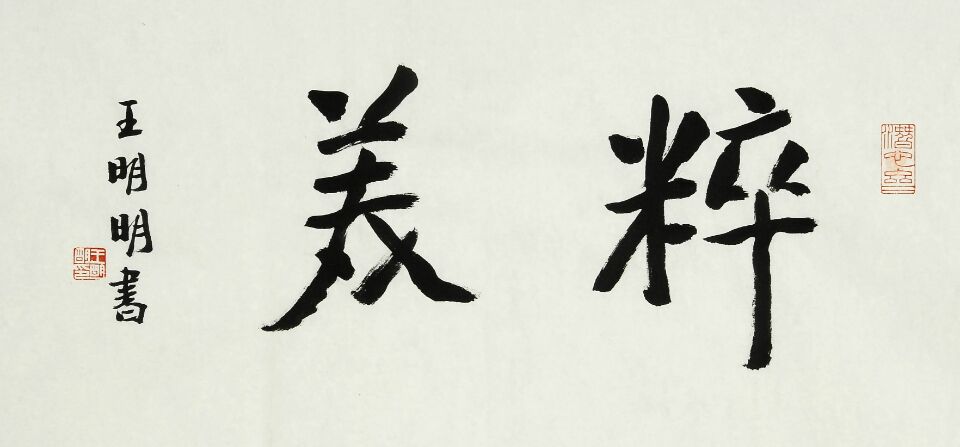 粹美
王明明書